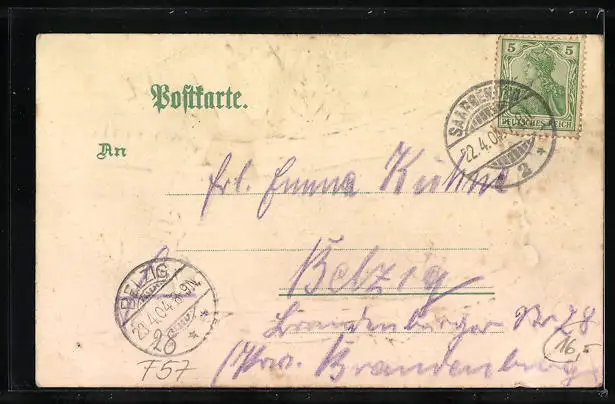 Postkarte.
5 5
DEUTSCHES REICH
SAARBRÜCKEN
22.4.04
2
An
Frl. Emma Kühne
Belzig
BELZIG
23.4.04. 8-9N.
Brandenburger Str. 28
28
(Prov. Brandenburg)
F57
16,-